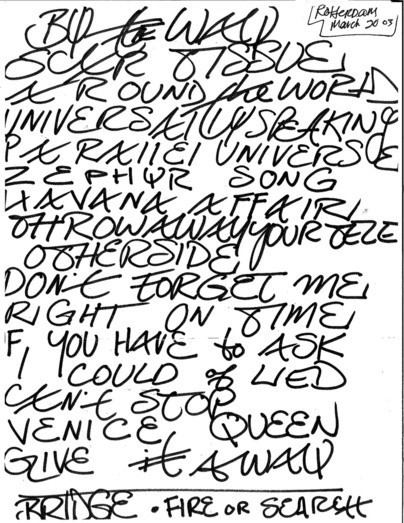 Rotterdam
March 2003
BY the WAY
SCAR TISSUE
AROUND the WORLD
UNIVERSALLY SPEAKING
PARALLEL UNIVERSE
ZEPHYR SONG
HAVANA AFFAIR
THROW AWAY YOUR TELE
OTHERSIDE
DON't FORGET ME
RIGHT ON TIME
IF YOU HAVE to ASK
I COULD of LIED
CAN't STOP
VENICE QUEEN
GIVE it AWAY
BRIDGE • FIRE or SEARCH